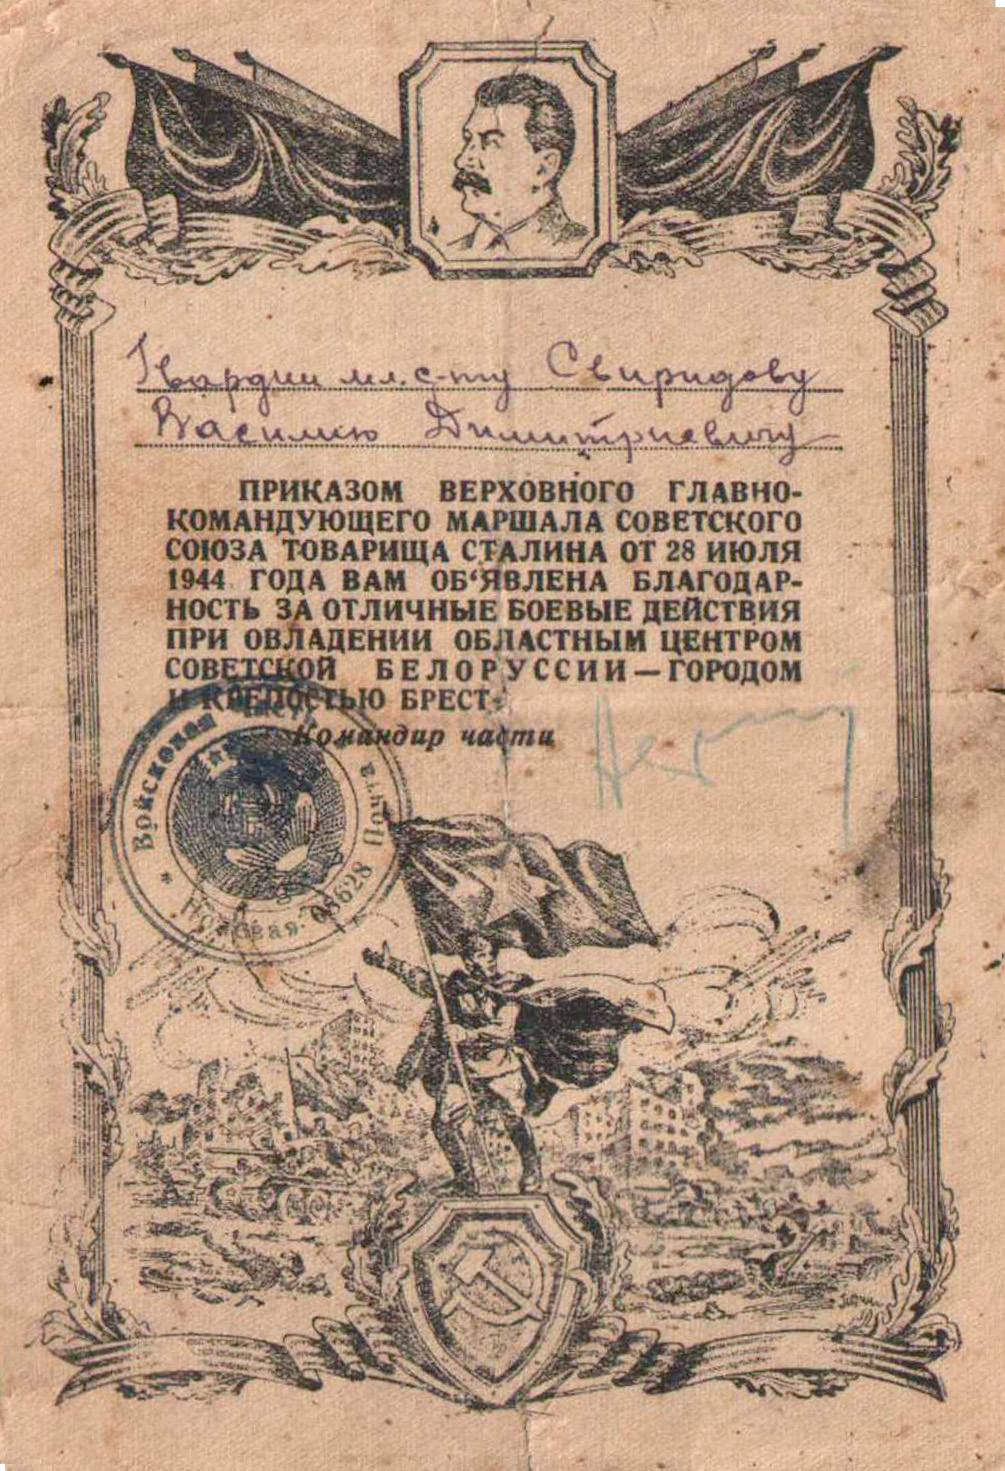 Гвардии мл. с-ту Свиридову
Василию Димитриевичу
ПРИКАЗОМ ВЕРХОВНОГО ГЛАВНО-
КОМАНДУЮЩЕГО МАРШАЛА СОВЕТСКОГО
СОЮЗА ТОВАРИЩА СТАЛИНА ОТ 28 ИЮЛЯ
1944 ГОДА ВАМ ОБ‘ЯВЛЕНА БЛАГОДАР-
НОСТЬ ЗА ОТЛИЧНЫЕ БОЕВЫЕ ДЕЙСТВИЯ
ПРИ ОВЛАДЕНИИ ОБЛАСТНЫМ ЦЕНТРОМ
СОВЕТСКОЙ БЕЛОРУССИИ—ГОРОДОМ
И КРЕПОСТЬЮ БРЕСТ.
Командир части
Войсковая часть
Полевая Почта
05628